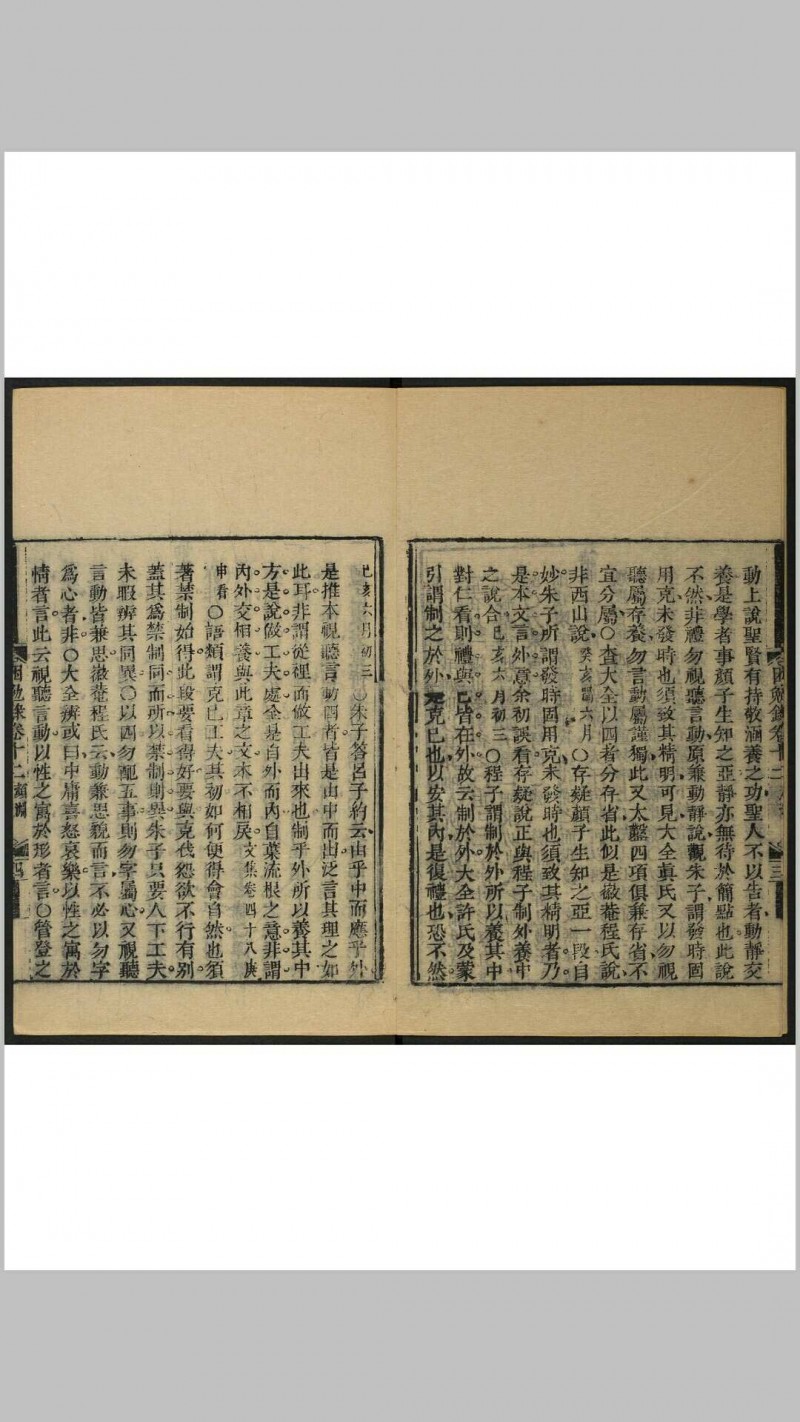 動上說聖賢有持敬涵養之功聖人不以告者動靜交
養是學者事顏子生知之亞靜亦無待於簡點也此說
不然非禮勿視聽言動原兼動靜說觀朱子謂發時固
用克未發時也須致其精明可見大全眞氏又以勿視
聽屬存養勿言動屬謹獨此又太鑿四項俱兼存省不
宜分屬〇查大全以四者分存省此似是徽菴程氏說
非西山說癸亥閏六月〇存疑顏子生知之亞一段自
妙朱子所謂發時固用克未發時也須致其精明者乃
是本文言外意余初誤看存疑說正與程子制外養中
之說合己亥六月初三〇程子謂制於外所以養其中
對仁看則禮與己皆在外故云制於外大全許氏及蒙
引謂制之於外克己也以安其內是復禮也恐不然
己亥六月初三〇朱子答呂子約云由乎中而應乎外
是推本視聽言動四者皆是由中而出泛言其理之如
此耳非謂從裡面做工夫出來也制乎外所以養其中
方是說做工夫處全是自外而內自葉流根之意非謂
內外交相養與此章之文本不相戾文集卷四十八庚
申看〇語類謂克己工夫其初如何便得會自然也須
著禁制始得此段要看得好要與克伐怨欲不行有別
蓋其爲禁制同而所以禁制則異朱子只要人下工夫
未暇辨其同異〇以四勿配五事則勿字屬心又視聽
言動皆兼思徽菴程氏云動兼思貌而言不必以勿字
爲心者非〇大全辨或曰中庸喜怒哀樂以性之寓於
情者言此云視聽言動以性之寓於形者言〇管登之
困勉錄卷十二 三
困勉錄卷十二 顏淵 四